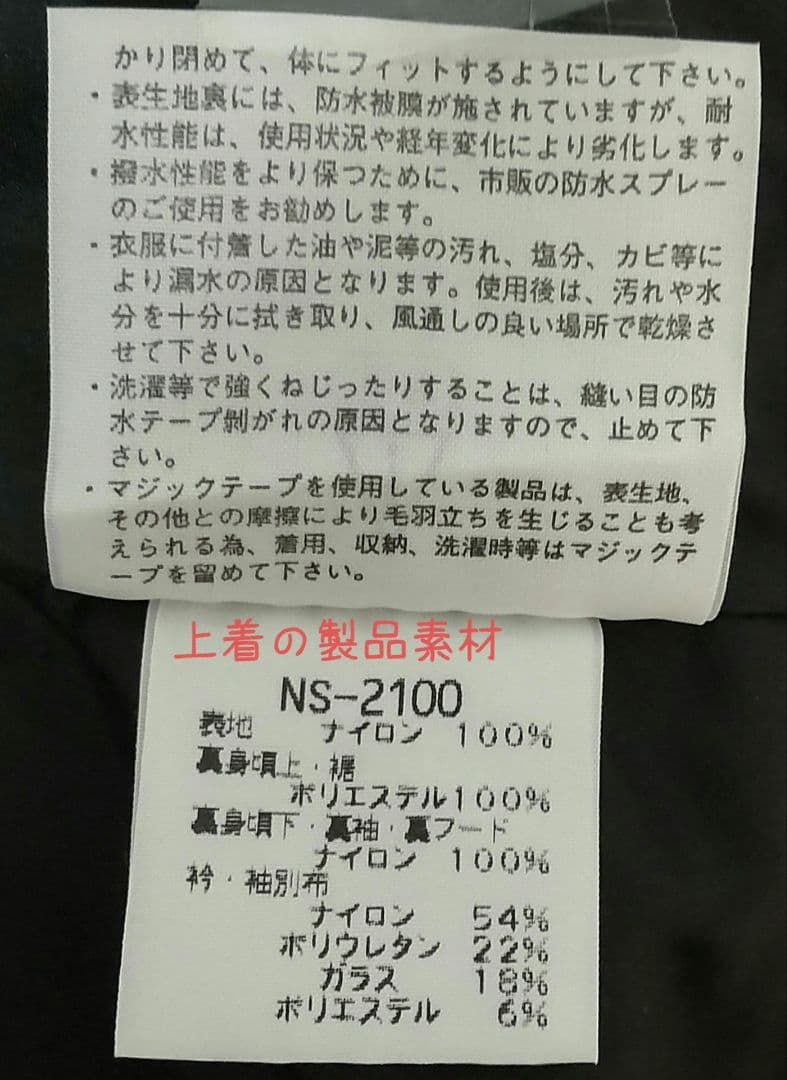 かり閉めて、体にフィットするようにして下さい。
・表生地裏には、防水被膜が施されていますが、耐
水性能は、使用状況や経年変化により劣化します。
・撥水性能をより保つために、市販の防水スプレー
のご使用をお勧めします。
・衣服に付着した油や泥等の汚れ、塩分、カビ等に
より漏水の原因となります。使用後は、汚れや水
分を十分に拭き取り、風通しの良い場所で乾燥さ
せて下さい。
・洗濯等で強くねじったりすることは、縫い目の防
水テープ剝がれの原因となりますので、止めて下
さい。
・マジックテープを使用している製品は、表生地、
その他との摩擦により毛羽立ちを生じることも考
えられる為、着用、収納、洗濯時等はマジックテ
ープを留めて下さい。
上着の製品素材
NS-2100
表地 ナイロン 100%
裏身頃上・裾
ポリエステル100%
裏身頃下・裏袖・裏フード
ナイロン 100%
衿・袖別布
ナイロン 54%
ポリウレタン 22%
ガラス 18%
ポリエステル 6%